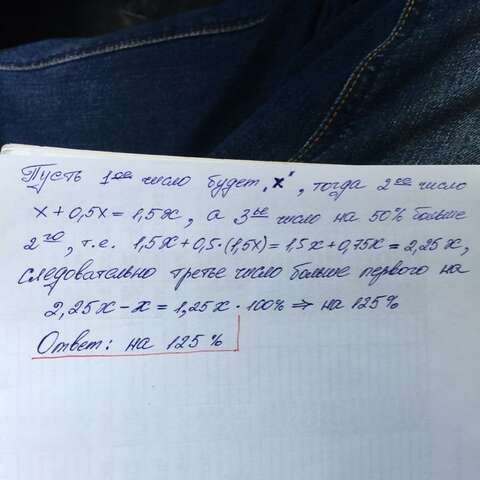 Пусть 1ое число будет „х“, тогда 2ое число
х + 0,5х = 1,5х, а 3ье число на 50% больше
2го, т.е. 1,5х + 0,5·(1,5х) = 1,5х + 0,75х = 2,25х,
следовательно третье число больше первого на
2,25х – х = 1,25х · 100% ⇒ на 125%
Ответ: на 125%